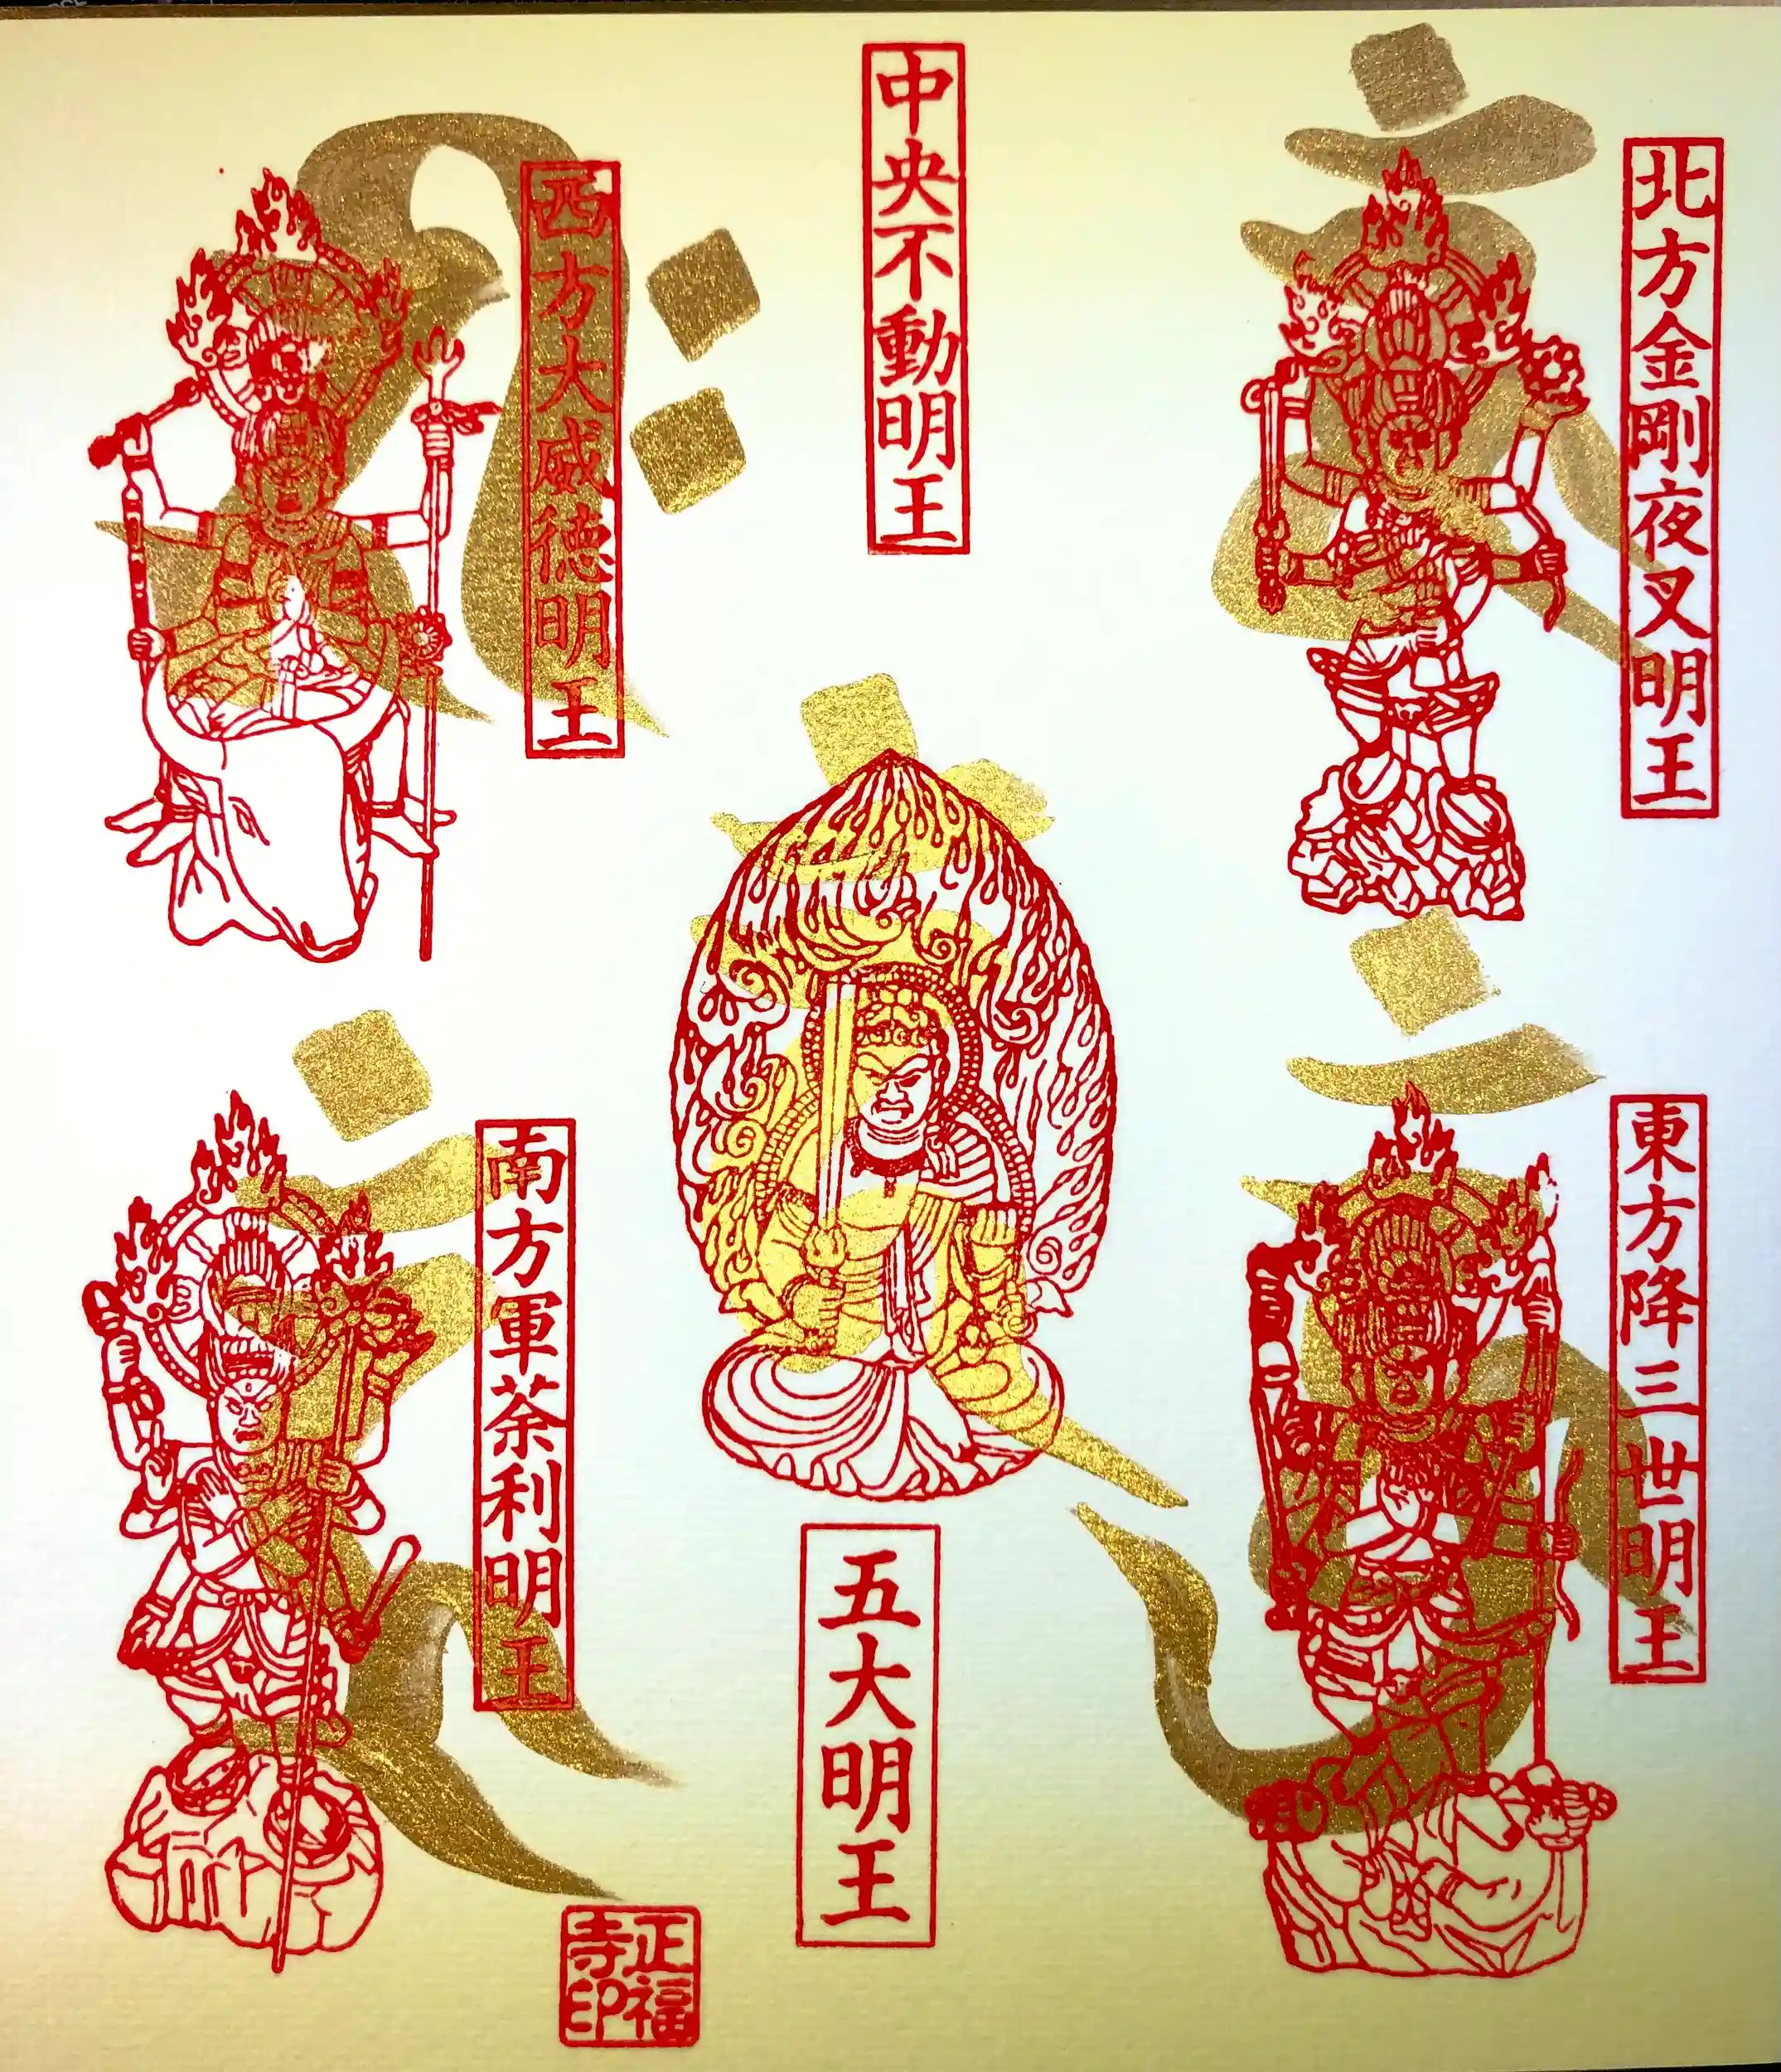 北方金剛夜叉明王
東方降三世明王
中央不動明王
五大明王
西方大威徳明王
南方軍荼利明王
正福
寺印